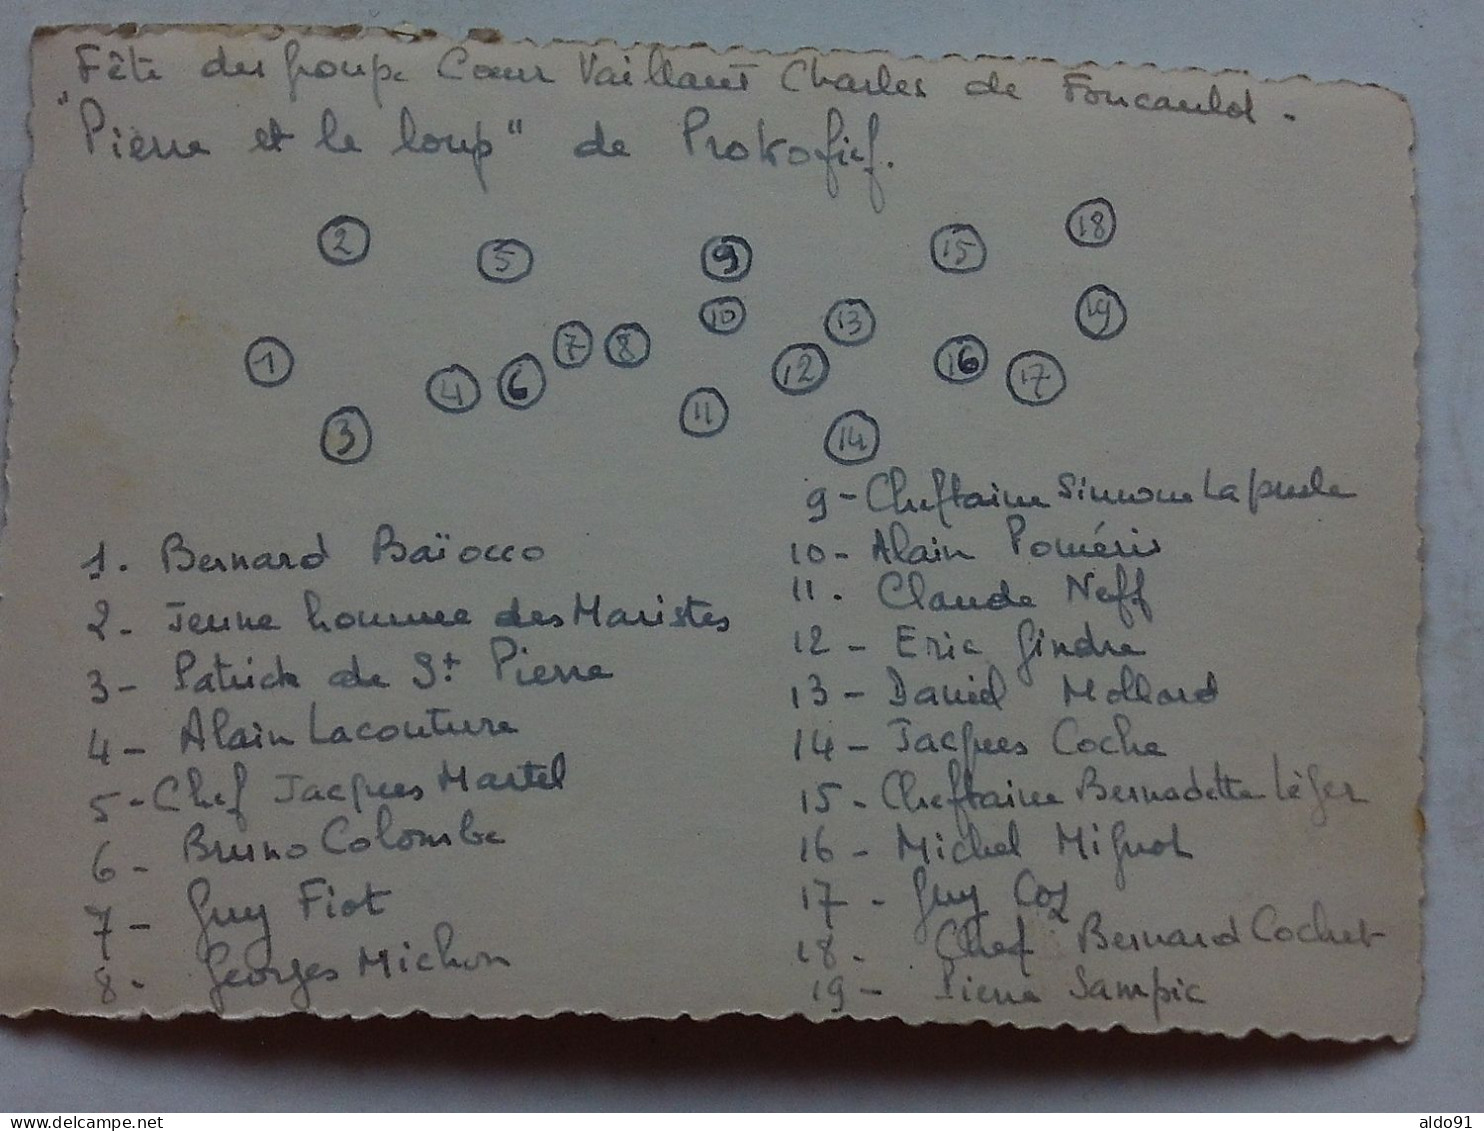 Fête du groupe Cœur Vaillant Charles de Foucauld.
"Pierre et le loup" de Prokofief.
2 5 9 15 18
10 13 19
1 7 8 12 16 17
4 6 11
3 14
1. Bernard Baïocco
2- Jeune homme des Maristes
3- Patrick de St Pierre
4- Alain Lacouture
5- Chef Jacques Martel
6- Bruno Colombe
7- Guy Fiot
8- Georges Michon
9- Cheftaine Simone
10- Alain Poméris
11. Claude Neff
12- Eric Gindre
13- Daniel Mollard
14- Jacques Coche
15- Cheftaine Bernadette Léger
16- Michel Mignot
17- Guy Coz
18. Chef Bernard Cochet
19- Pierre Sampic
delcampe.net
aldo91